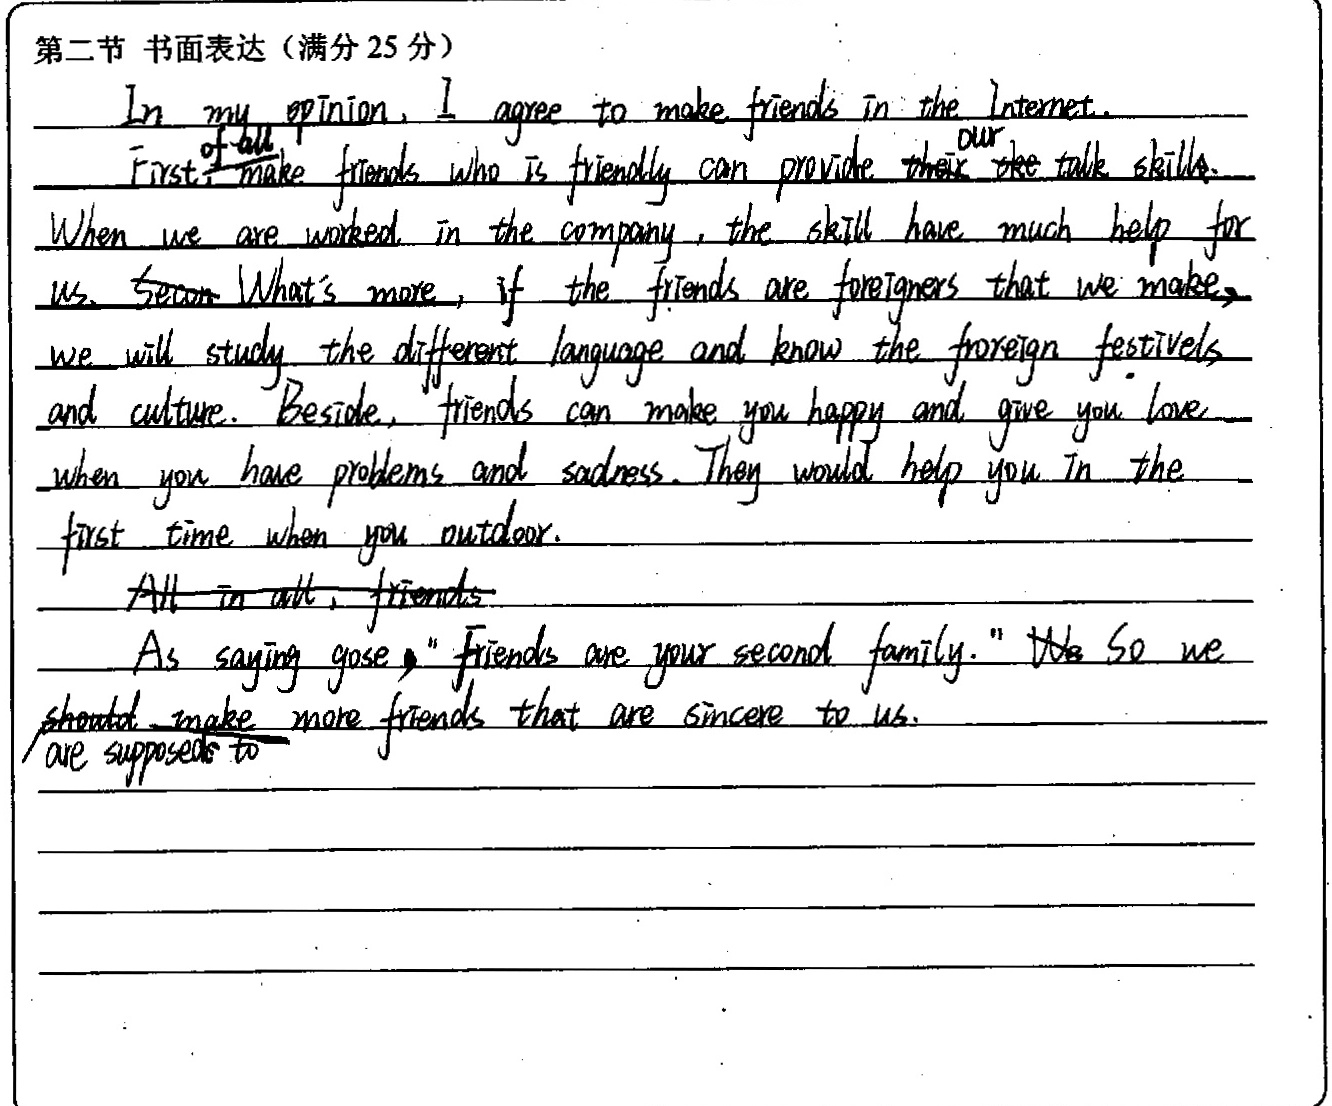 第二节 书面表达（满分 25 分）
In my opinion, I agree to make friends in the Internet.
First of all, make friends who is friendly can provide our talk skills.
When we are worked in the company, the skill have much help for
us. What's more, if the friends are foreigners that we make,
we will study the different language and know the froreign festivels
and culture. Beside, friends can make you happy and give you love
when you have problems and sadness. They would help you in the
first time when you outdoor.
All in all, friends
As saying gose, "friends are your second family." So we
are supposed to make more friends that are sincere to us.